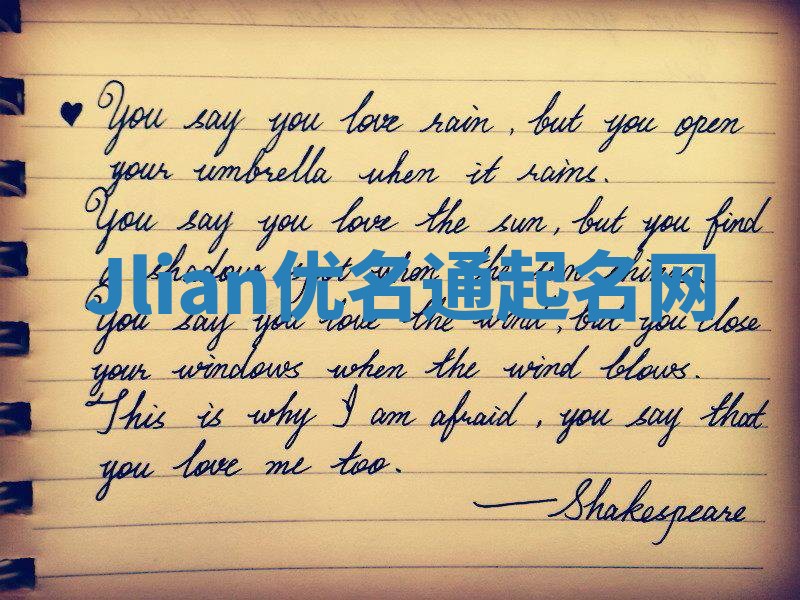 You say you love rain, but you open
your umbrella when it rains.
You say you love the sun, but you find
a shadow spot when the sun shines.
Jlian优名通起名网
You say you love the wind, but you close
your windows when the wind blows.
This is why I am afraid, you say that
you love me too.
—Shakespeare